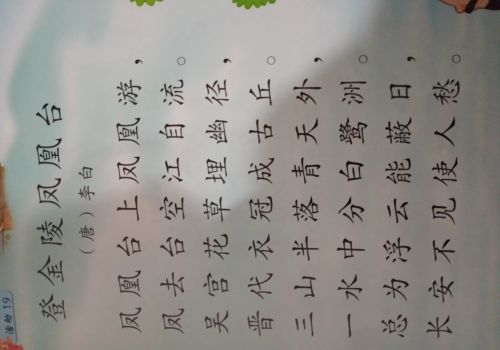 登金陵凤凰台
（唐）李白
凤凰台上凤凰游，
凤去台空江自流。
吴宫花草埋幽径，
晋代衣冠成古丘。
三山半落青天外，
一水中分白鹭洲。
总为浮云能蔽日，
长安不见使人愁。
活动19